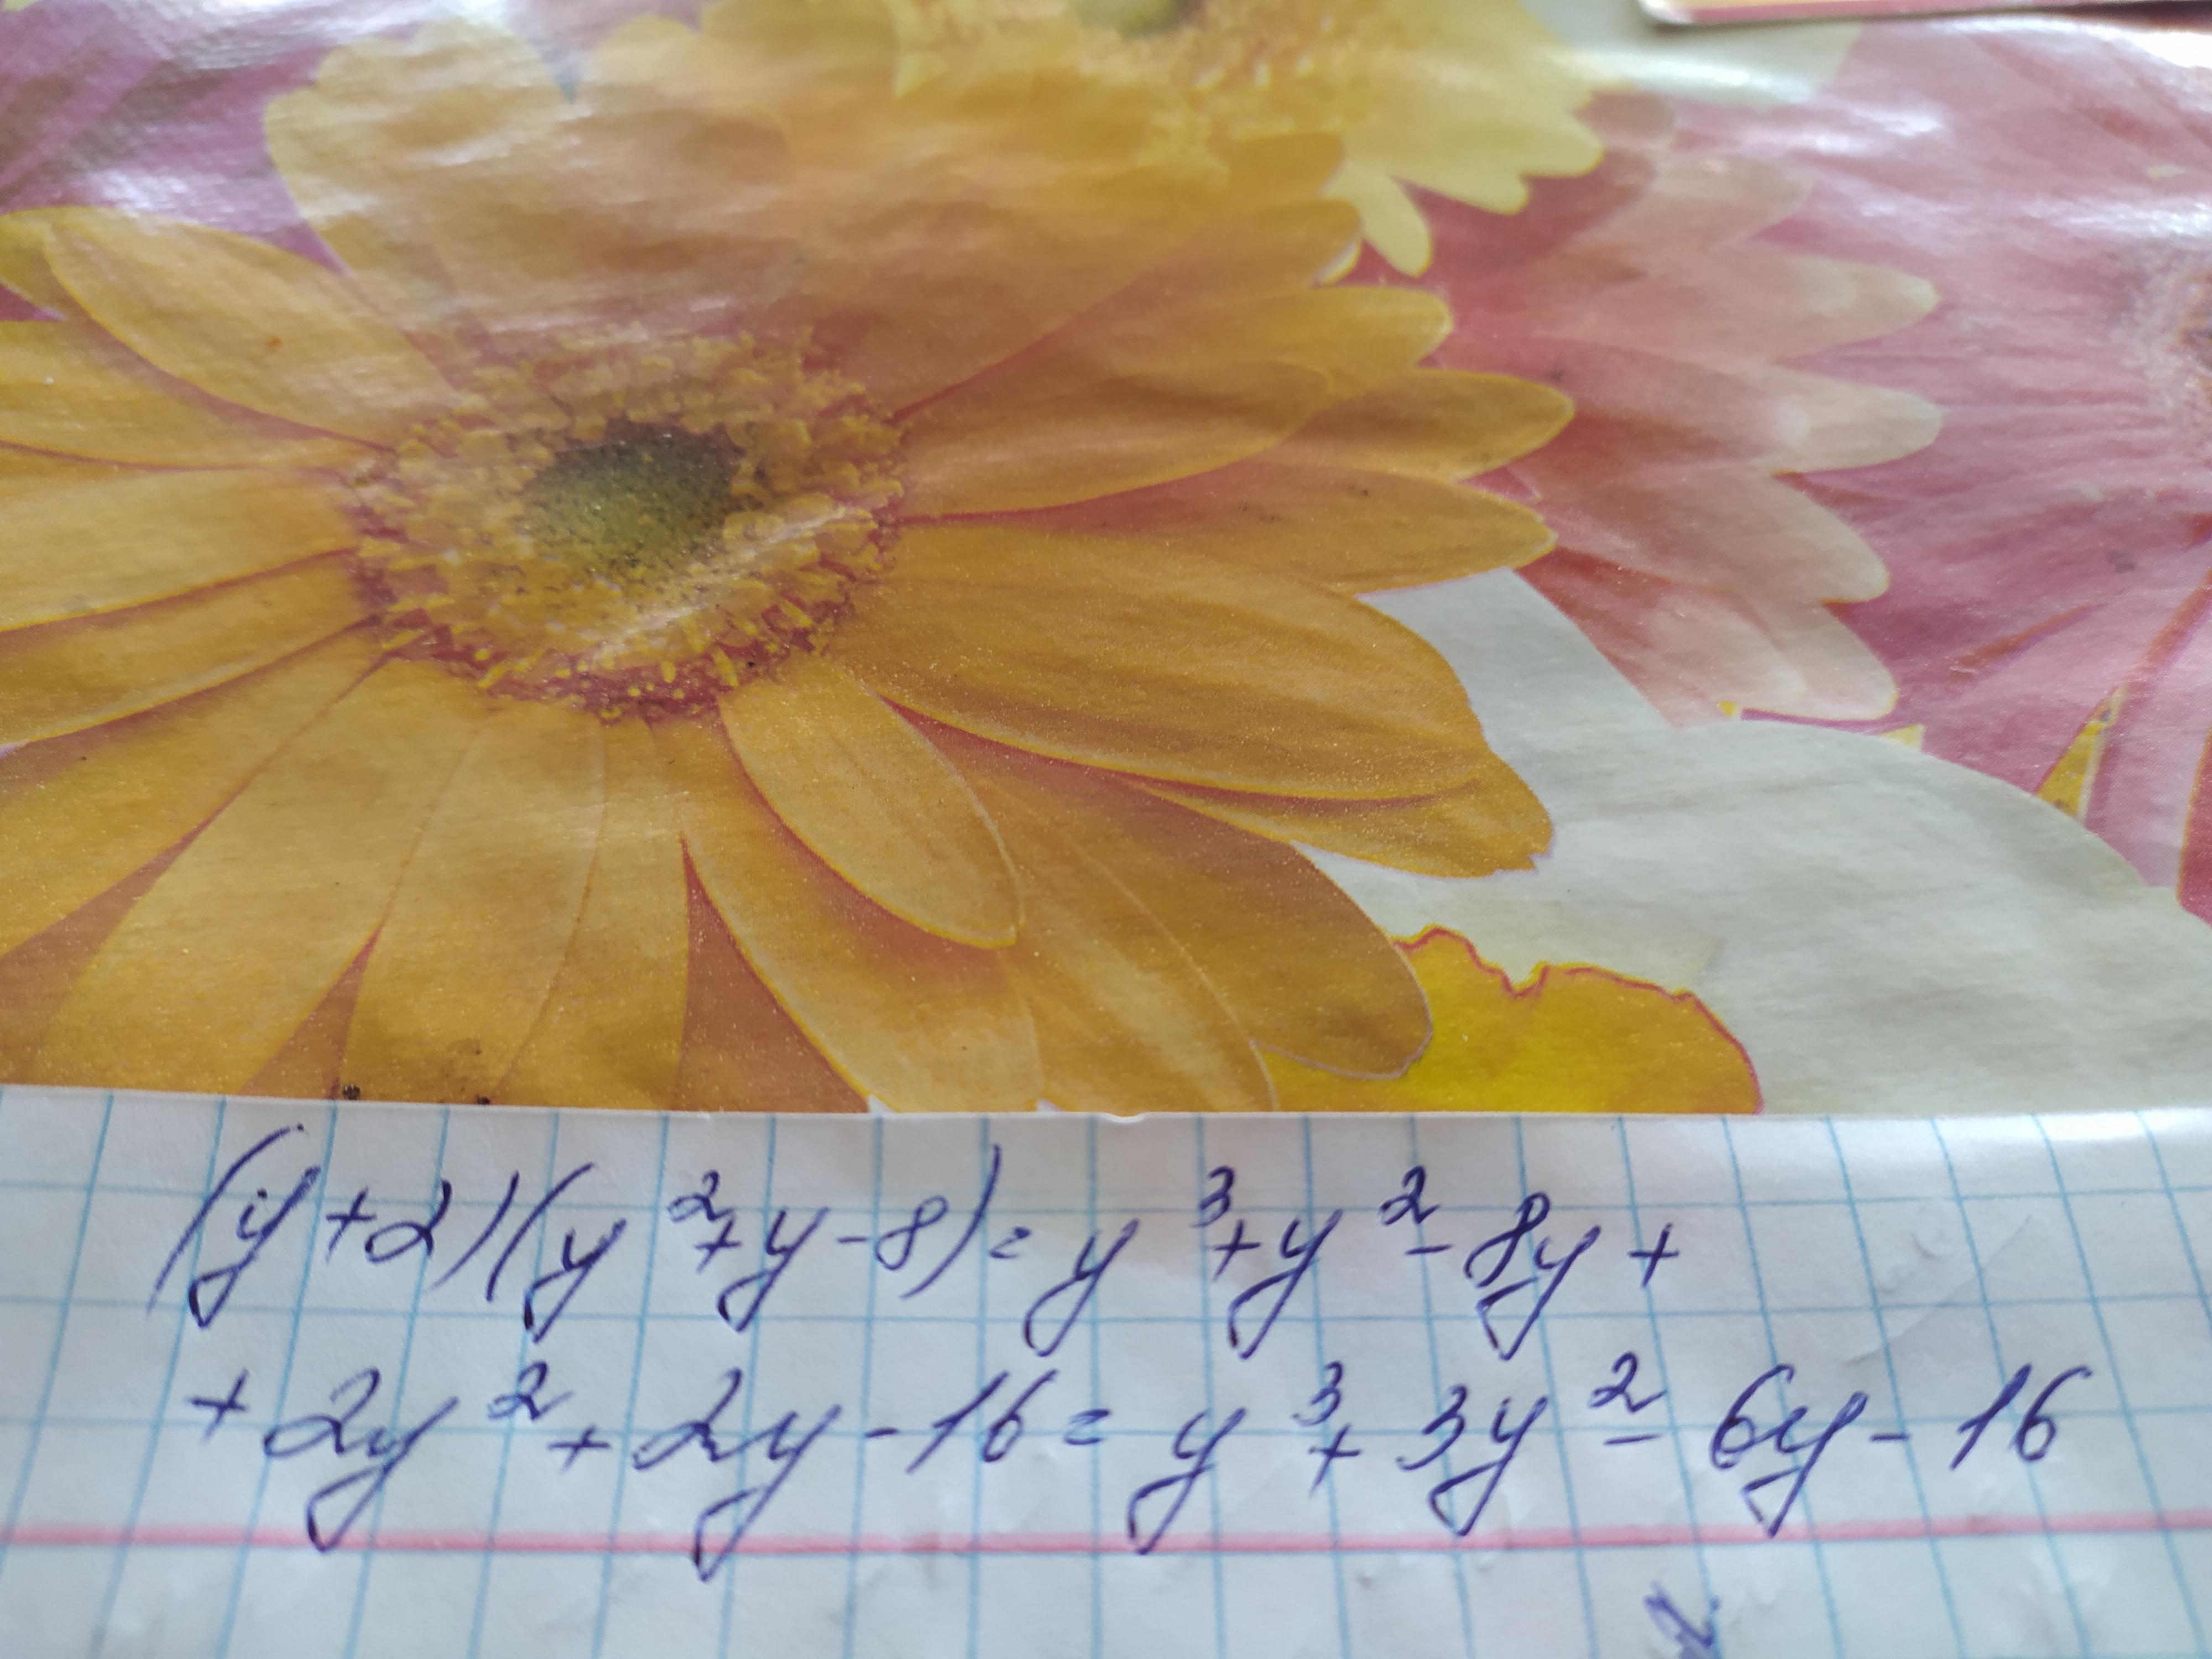 (y+2)(y²+y-8)=y³+y²-8y+
+2y²+2y-16=y³+3y²-6y-16